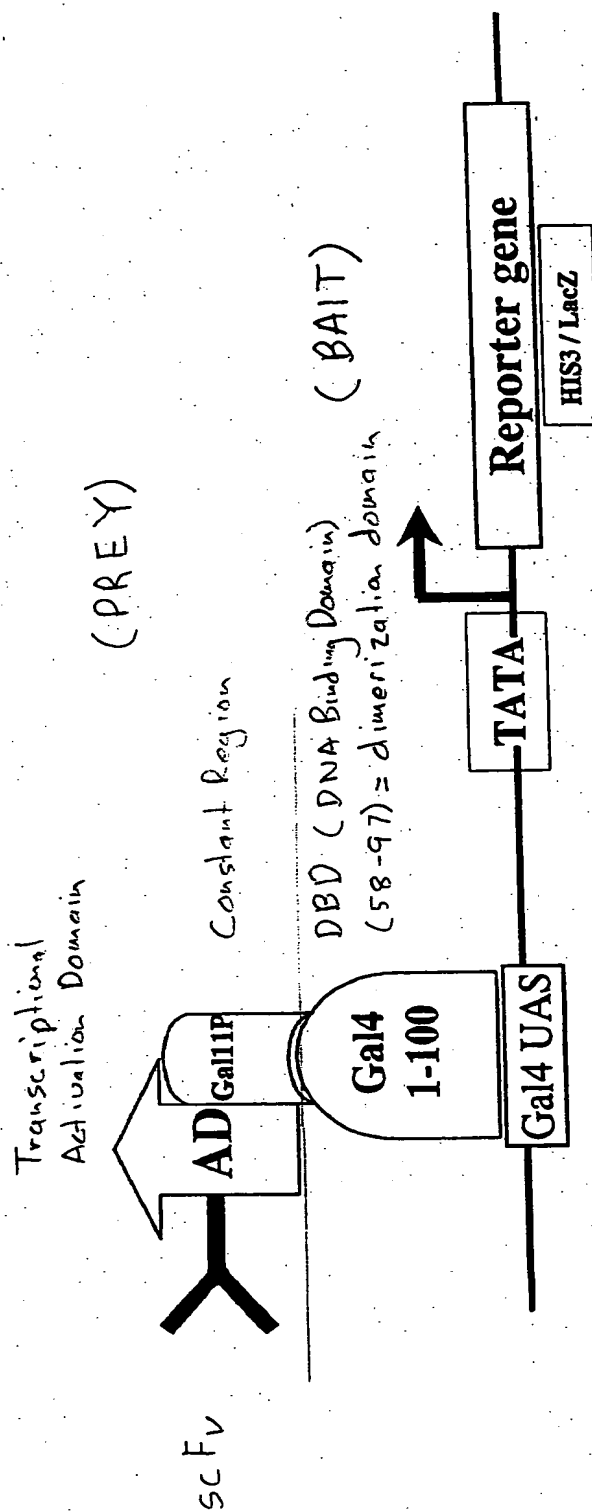 Transcriptional
Activation Domain
(PREY)
scFv
AD
Gal11P
Constant Region
DBD (DNA Binding Domain)
(58-97) = dimerization domain
(BAIT)
Gal4
1-100
Gal4 UAS
TATA
Reporter gene
HIS3 / LacZ